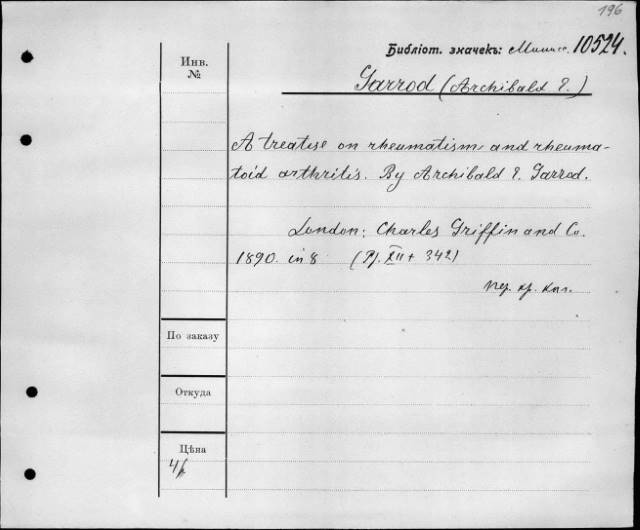 196
Библіот. значекъ: 10524.
Инв.
№
Garrod (Archibald E.)
A treatise on rheumatism and rheuma-
toid arthritis. By Archibald E. Garrod.
London: Charles Griffin and Co.
1890. in 8 (Pp. XII + 342)
пер. кр. кол.
По заказу
Откуда
Цѣна